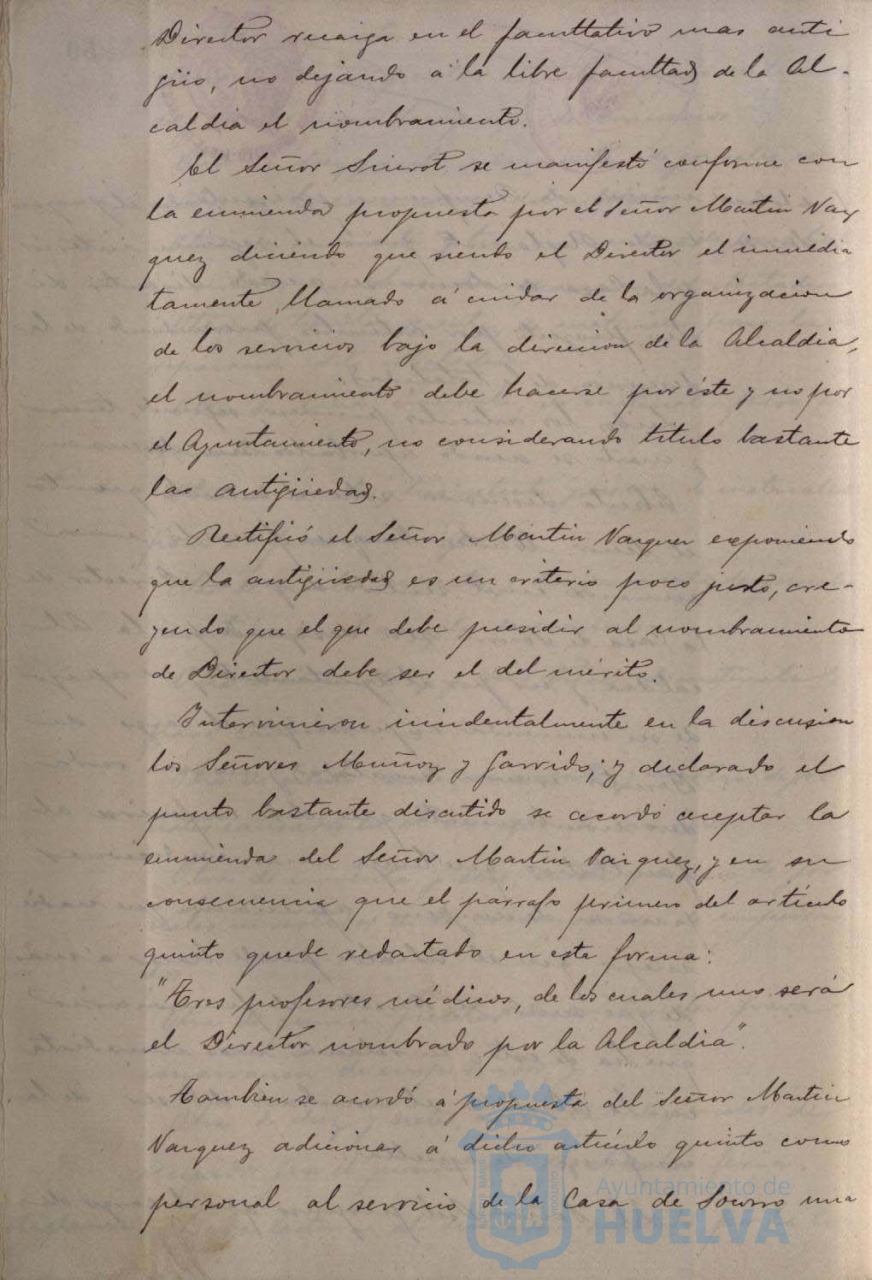 Director recaiga en el facultativo mas anti
güo, no dejando á la libre facultad de la Al-
caldia el nombramiento.
El Señor Siurot se manifestó conforme con
la enmienda propuesta por el Señor Martin Vaz
quez diciendo que siendo el Director el inmedia
tamente llamado á cuidar de la organizacion
de los servicios bajo la direccion de la Alcaldia,
el nombramiento debe hacerse por éste y no por
el Ayuntamiento, no considerando titulo bastante
las antigüedad.
Rectificó el Señor Martin Vazquez exponiendo
que la antigüedad es un criterio poco justo, cre-
yendo que el que debe presidir al nombramiento
de Director debe ser el del mérito.
Intervinieron incidentalmente en la discusion
los Señores Muñoz y Garrido; y declarado el
punto bastante discutido se acordó aceptar la
enmienda del Señor Martin Vazquez, y en su
consecuencia que el párrafo primero del artículo
quinto quede redactado en esta forma:
"Tres profesores médicos, de los cuales uno será
el Director nombrado por la Alcaldia".
Tambien se acordó á propuesta del Señor Martin
Vazquez adicionar á dicho artículo quinto como
personal al servicio de la Casa de Socorro una
Ayuntamiento de
HUELVA